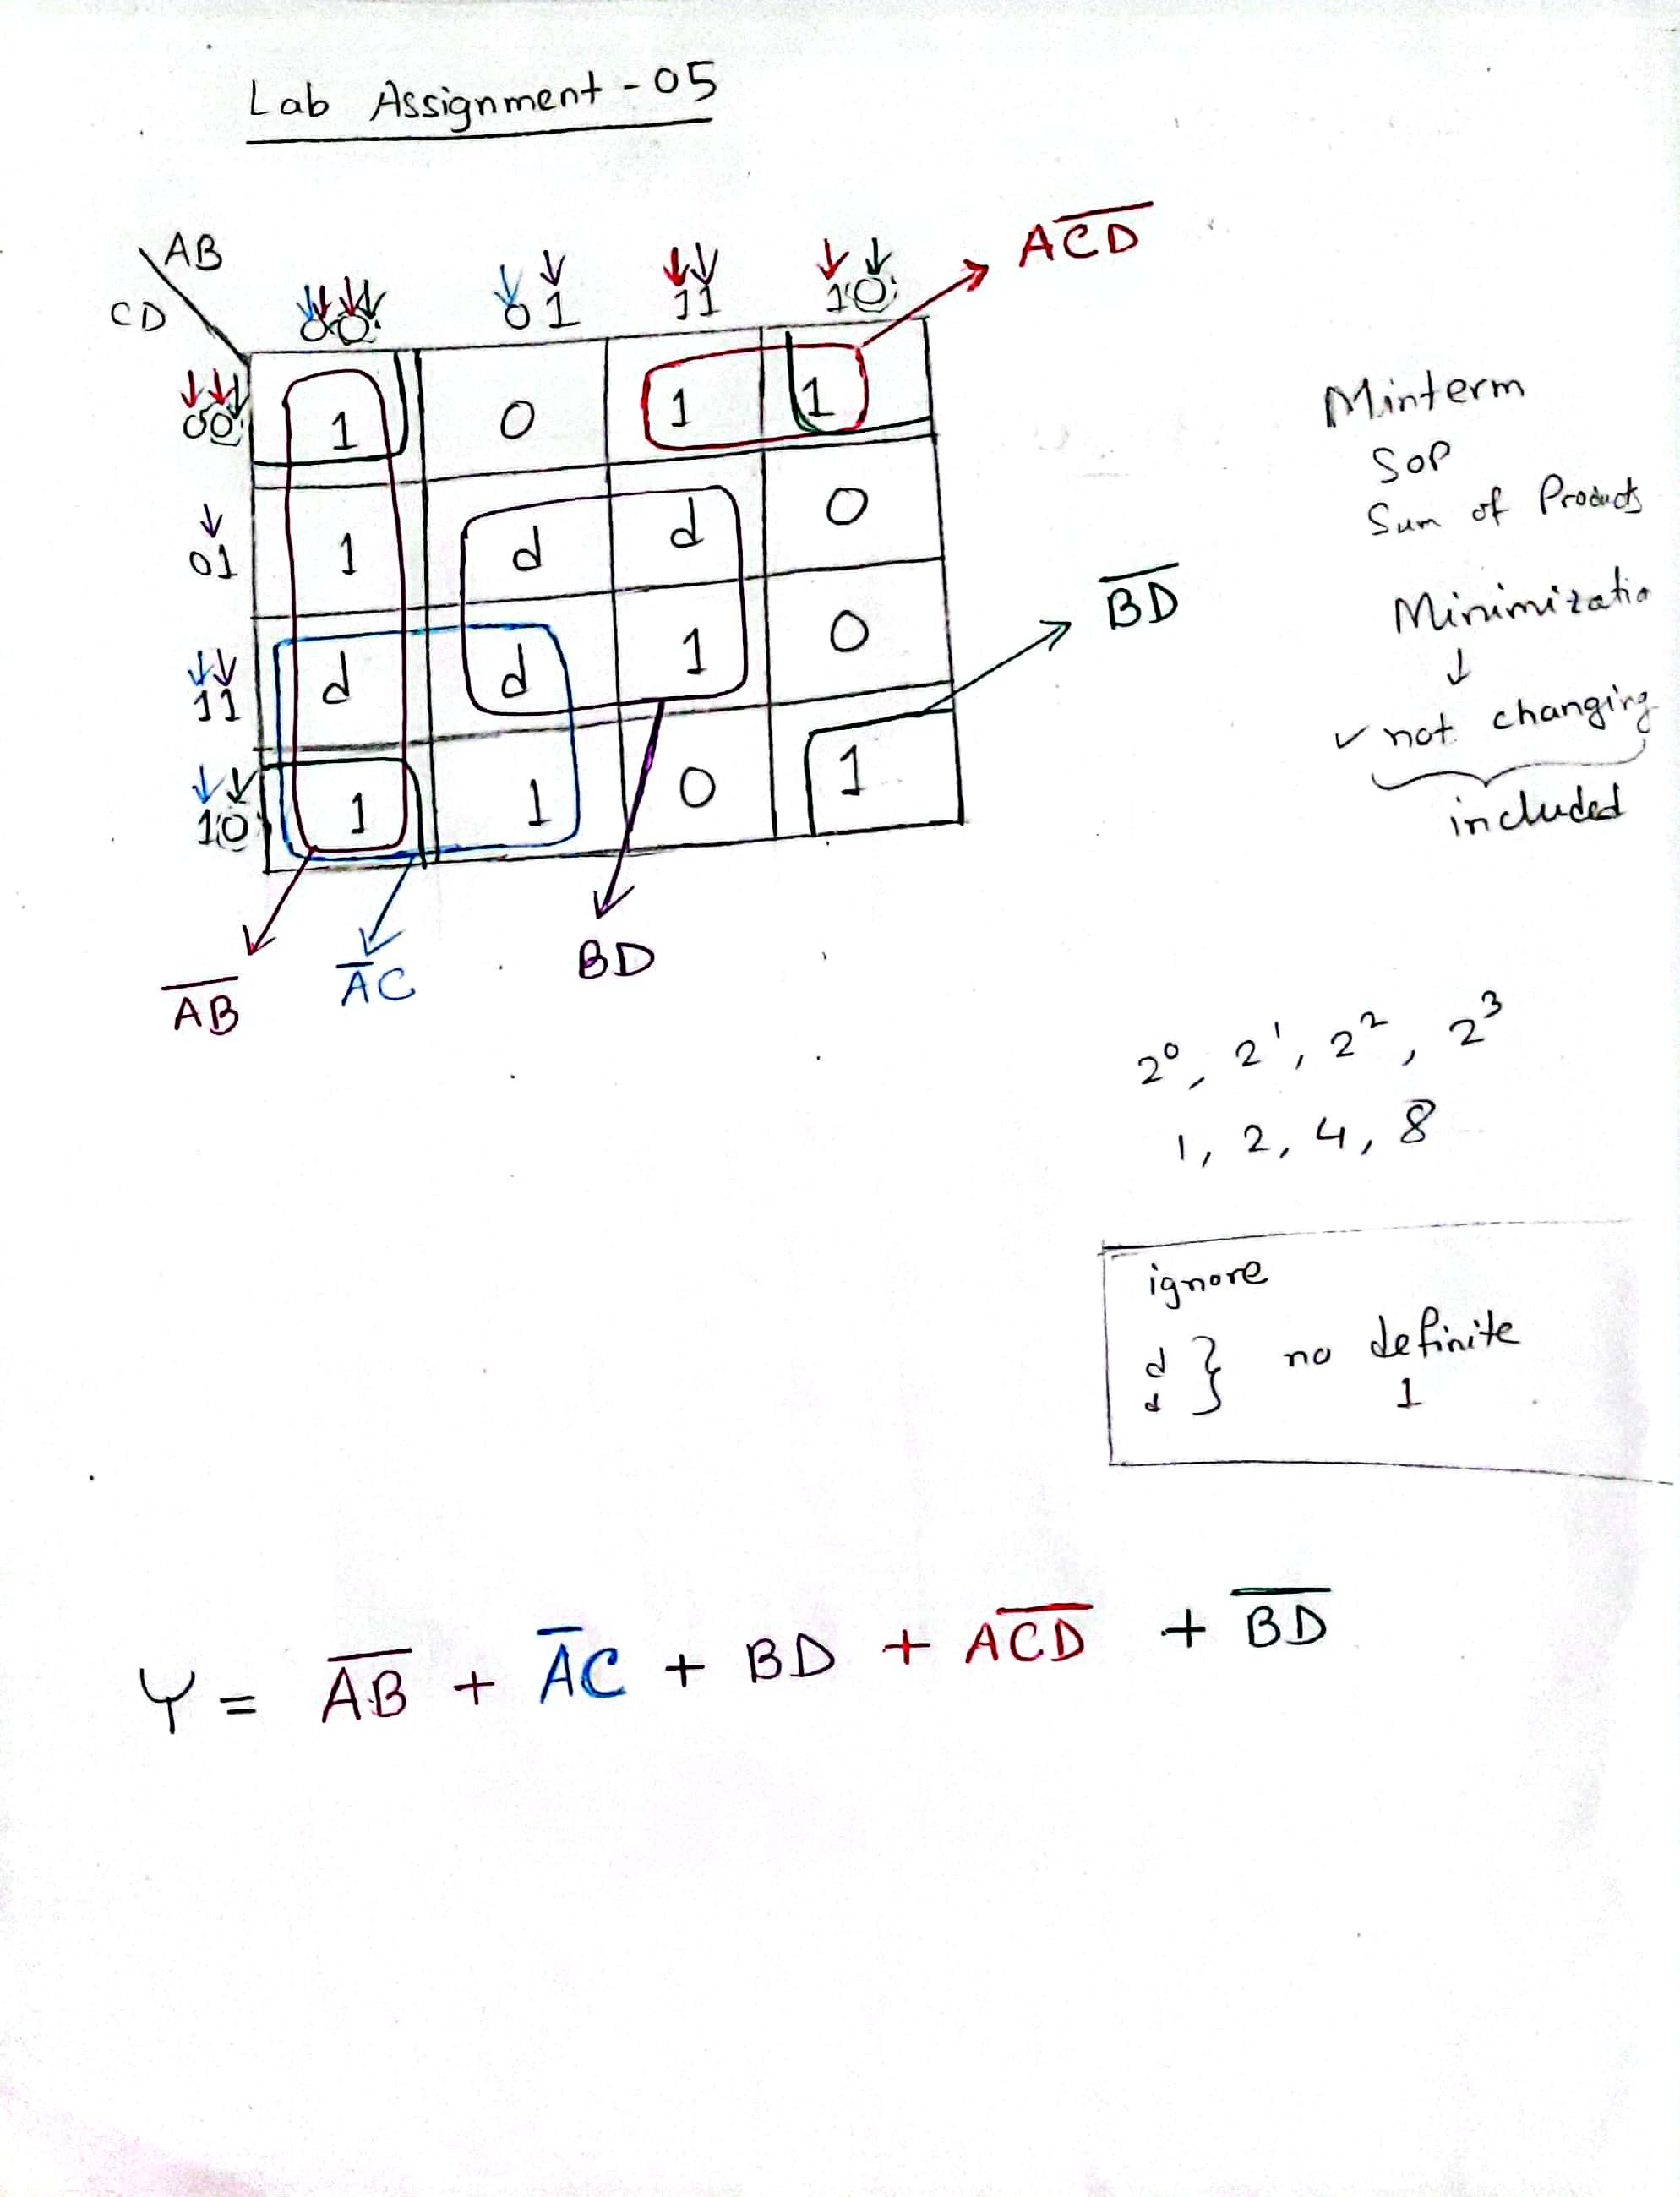 Lab Assignment - 05
AB
CD
00 01 11 10
A\overline{CD}
00 1 0 1 1
01 1 d d 0
11 d d 1 0
10 1 1 0 1
\overline{BD}
\overline{AB}
\overline{A}C
BD
Minterm
SOP
Sum of Products
Minimizatio
↓
✓ not changing
included
2⁰, 2¹, 2², 2³
1, 2, 4, 8
ignore
d } no definite
d 1
Y = \overline{AB} + \overline{A}C + BD + A\overline{CD} + \overline{BD}